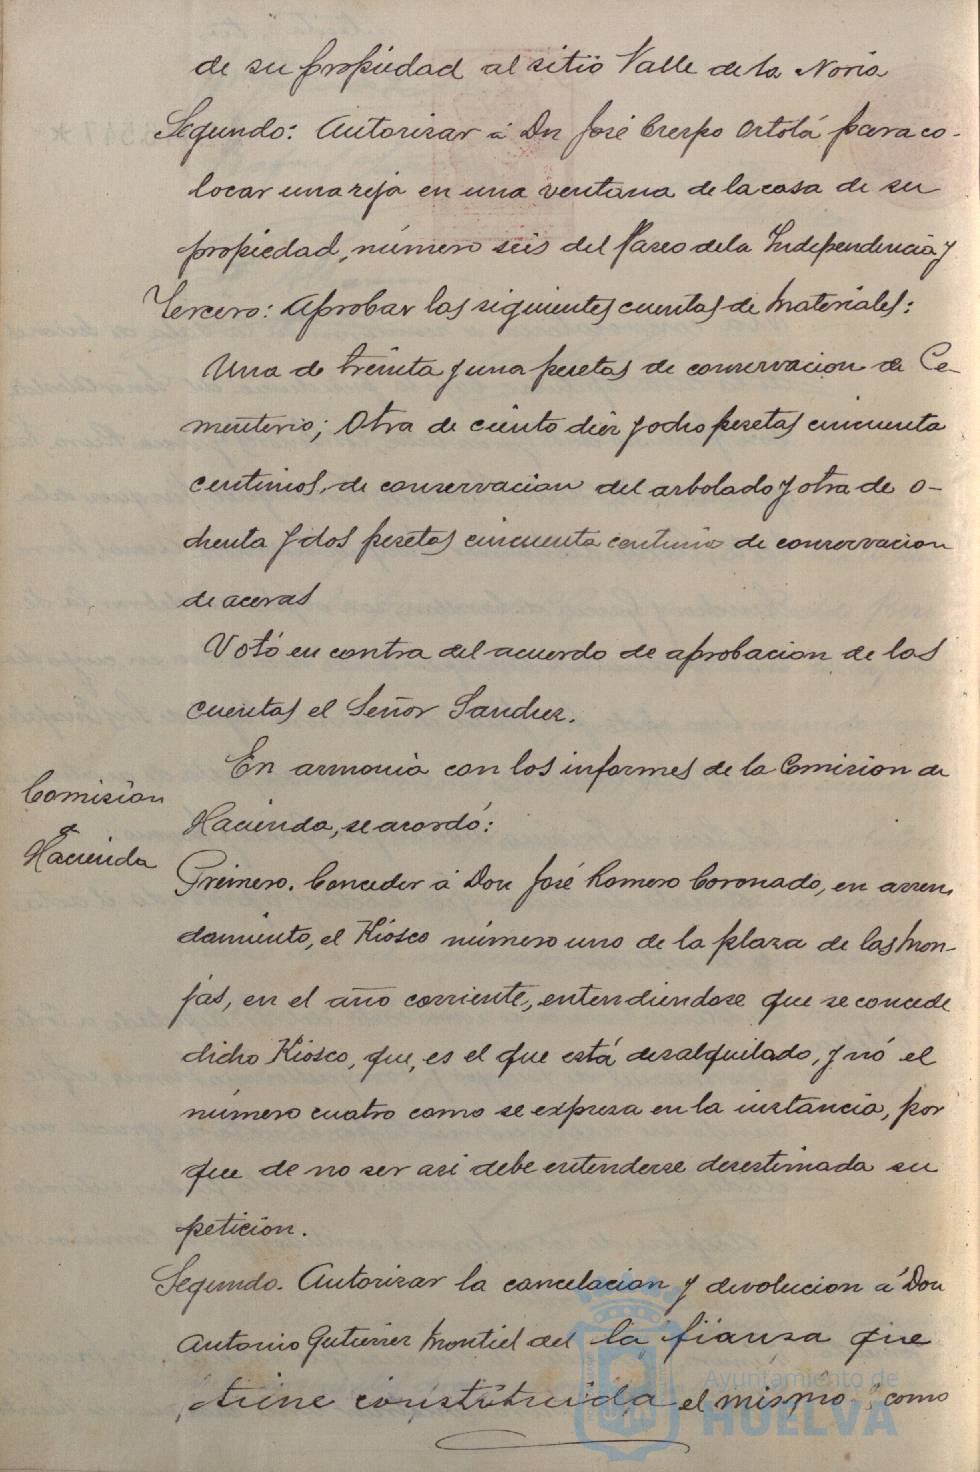 de su propiedad al sitio Valle de la Noria
Segundo: Autorizar á Dn José Crespo Ortolá para co-
locar una reja en una ventana de la casa de su
propiedad, número seis del Paseo de la Independencia y
Tercero: Aprobar las siguientes cuentas de materiales:
Una de treinta y una pesetas de conservacion de Ce-
menterio; Otra de ciento diez y ocho pesetas cincuenta
centimos, de conservacion del arbolado y otra de o-
chenta y dos pesetas cincuenta centimos de conservacion
de aceras
Votó en contra del acuerdo de aprobacion de las
cuentas el Señor Sanchez.
En armonia con los informes de la Comision de
Comision
Hacienda, se acordó:
de
Hacienda
Primero. Conceder á Don José Romero Coronado, en arren
damiento, el Kiosco número uno de la plaza de las Mon-
jas, en el año corriente, entendiendose que se concede
dicho Kiosco, que, es el que está desalquilado, y nó el
número cuatro como se expresa en la instancia, por
que de no ser asi debe entenderse desestimada su
peticion.
Segundo. Autorizar la cancelacion y devolucion á Don
Antonio Gutierrez Montiel del la fianza que
tiene constituida el mismo, como
Ayuntamiento de
HUELVA